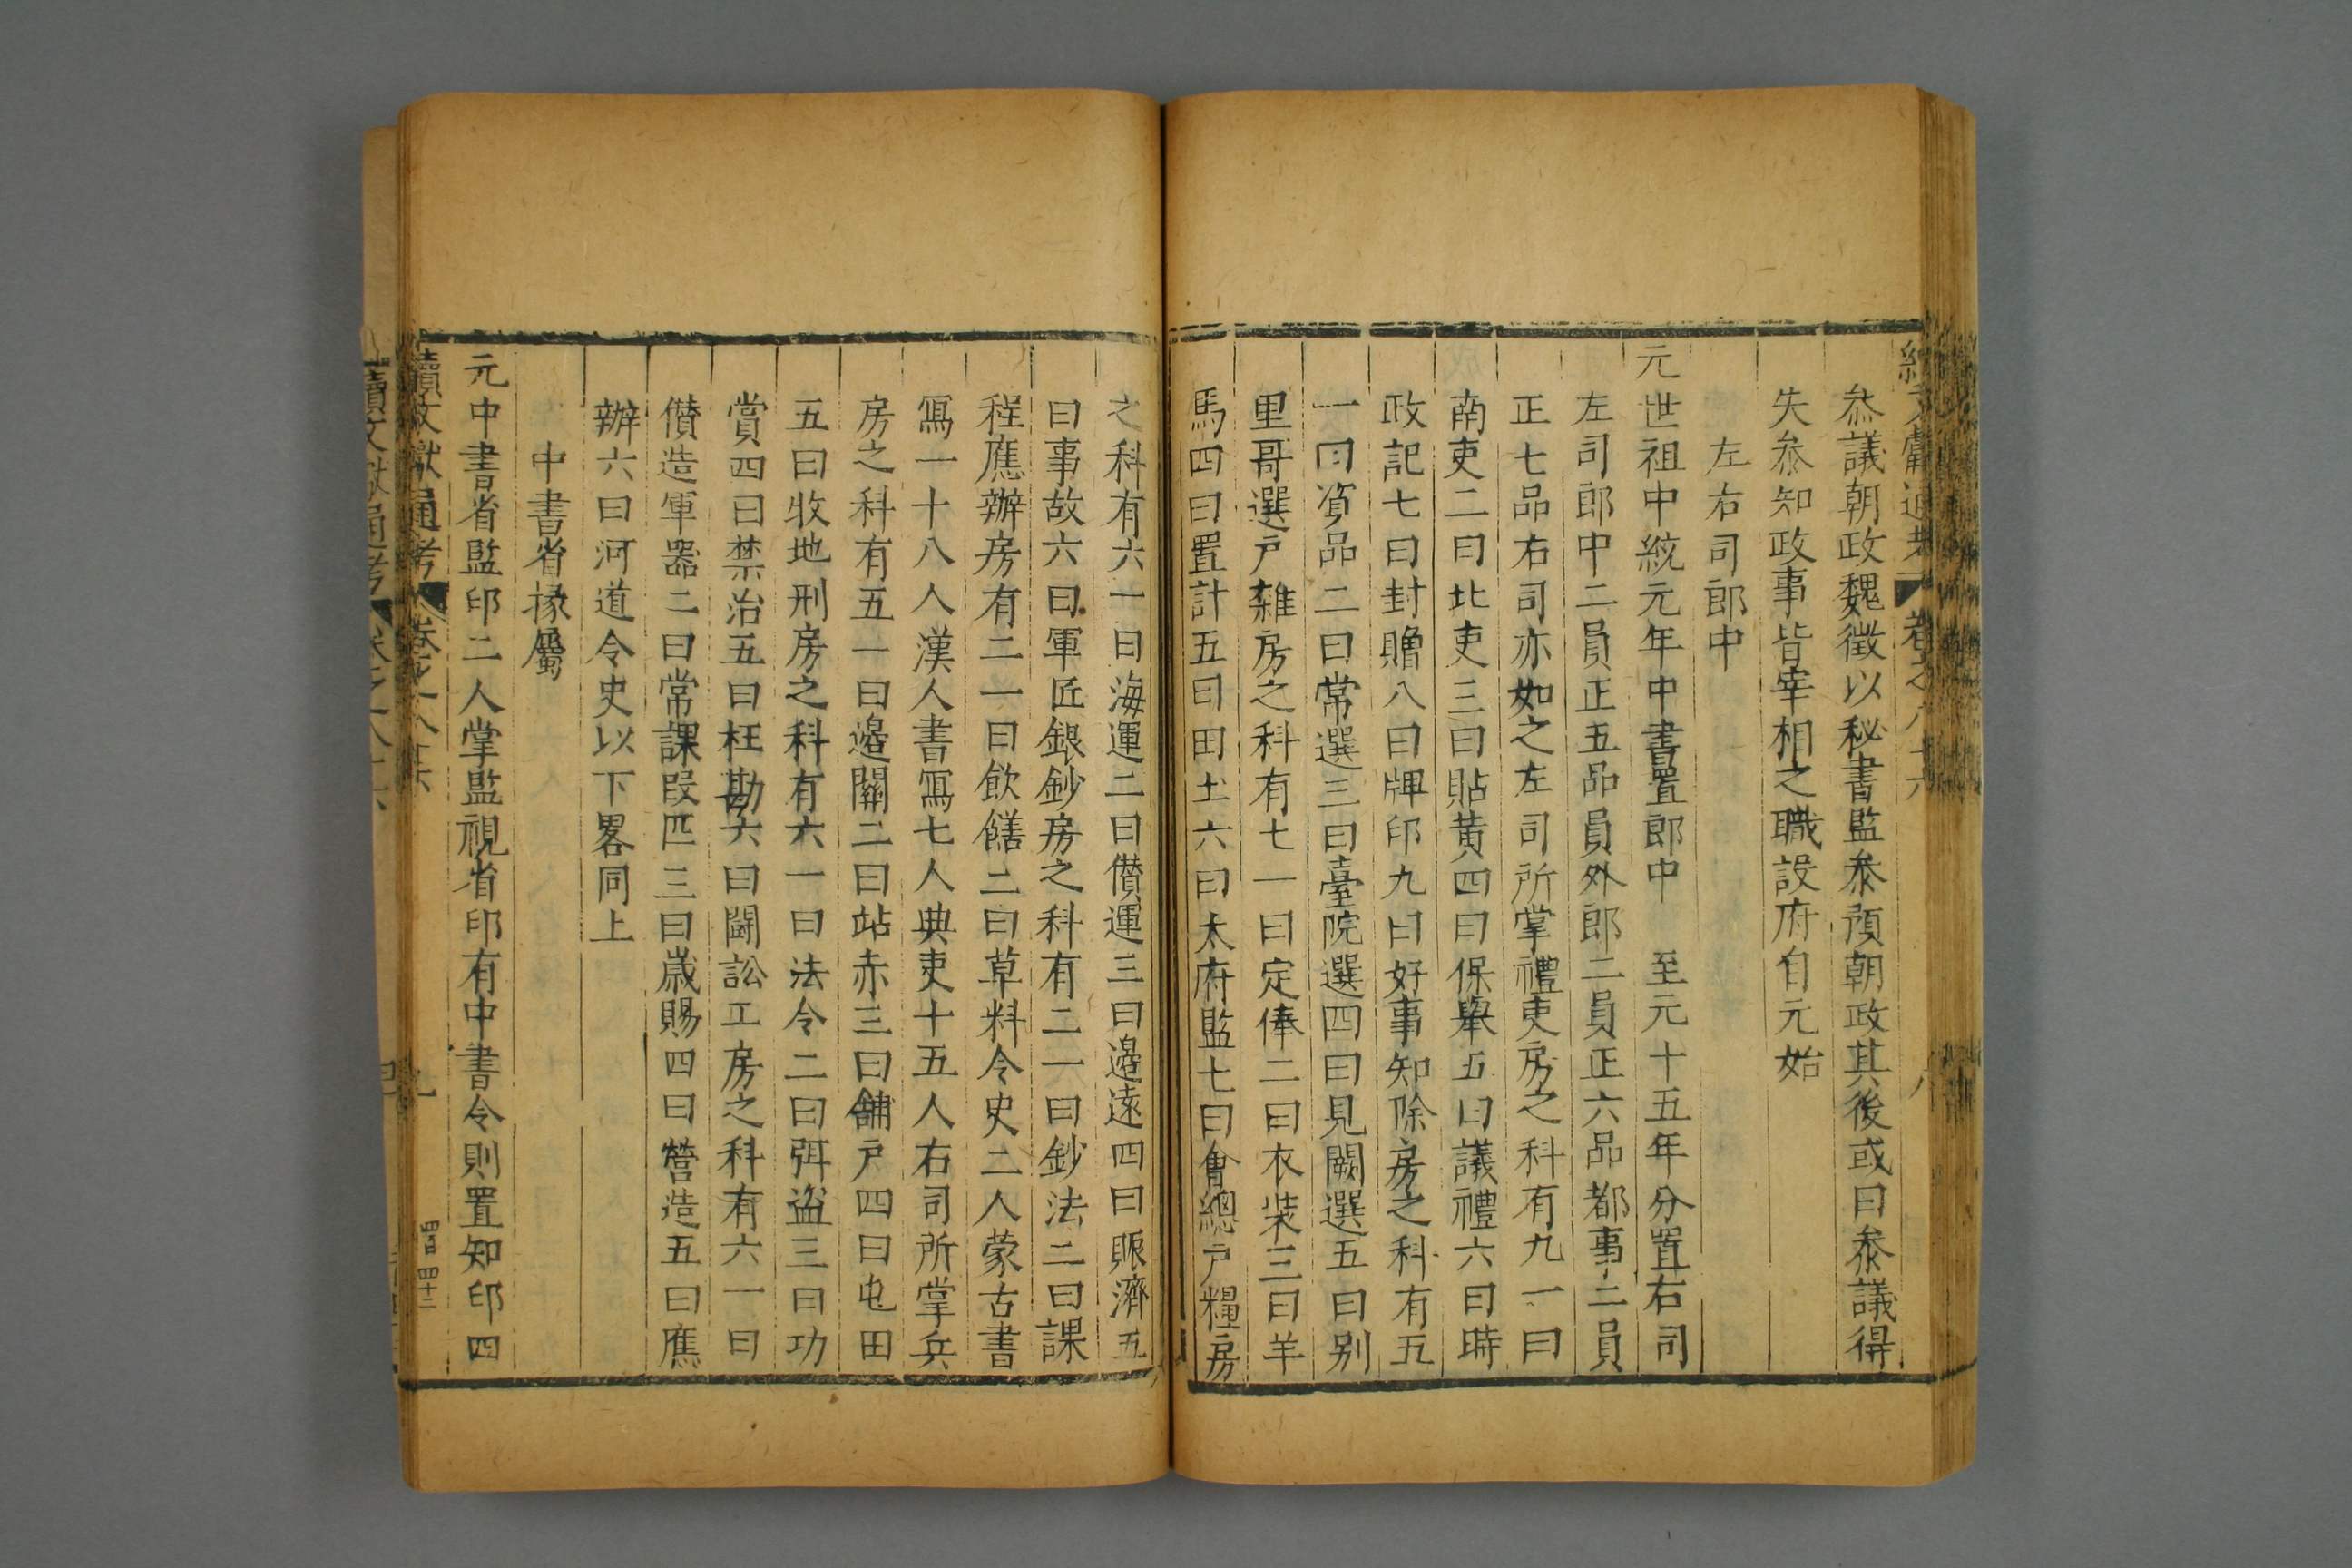 叅議朝政魏徵以秘書監叅預朝政其後或曰叅議得
失叅知政事皆宰相之職設府自元始
左右司郎中
元世祖中統元年中書置郎中　至元十五年分置右司
左司郎中二員正五品員外郎二員正六品都事二員
正七品右司亦如之左司所掌禮吏房之科有九一曰
南吏二曰北吏三曰貼黃四曰保舉五曰議禮六曰時
政記七曰封贈八曰牌印九曰好事知除房之科有五
一曰資品二曰常選三曰臺院選四曰見闕選五曰别
里哥選戶雜房之科有七一曰定俸二曰衣裝三曰羊
馬四曰置計五曰田土六曰太府監七曰會總戶糧房
之科有六一曰海運二曰儹運三曰邉遠四曰賑濟五
曰事故六曰軍匠銀鈔房之科有二一曰鈔法二曰課
程應辦房有二一曰飲饍二曰草料令史二人蒙古書
寫一十八人漢人書寫七人典吏十五人右司所掌兵
房之科有五一曰邉關二曰站赤三曰舖戶四曰屯田
五曰牧地刑房之科有六一曰法令二曰弭盗三曰功
賞四曰禁治五曰枉勘六曰鬬訟工房之科有六一曰
儹造軍器二曰常課叚匹三曰歲賜四曰營造五曰應
辦六曰河道令史以下畧同上
中書省掾屬
元中書省監印二人掌監視省印有中書令則置知印四
續文獻通考
卷之八十六